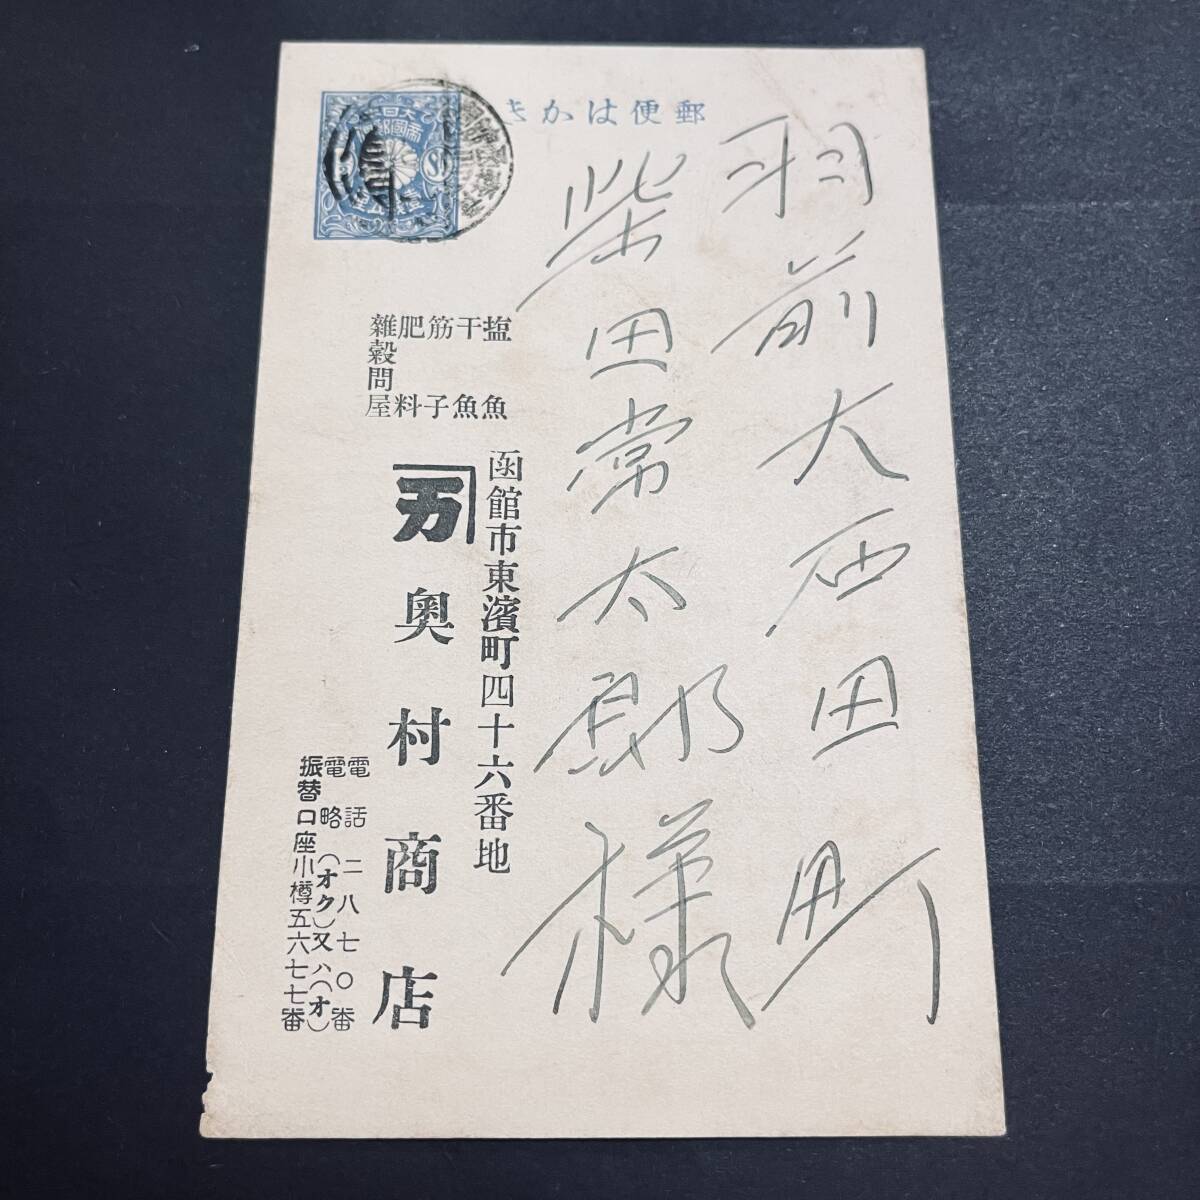 郵便はかき
羽前大石田町
柴田常太郎様
塩魚
干魚
筋子
肥料
雜穀問屋
函館市東濱町四十六番地
万 奥村商店
電話二八七〇番
電略(オク)又ハ(オ)
振替口座小樽五六七七番
大日
帝國郵